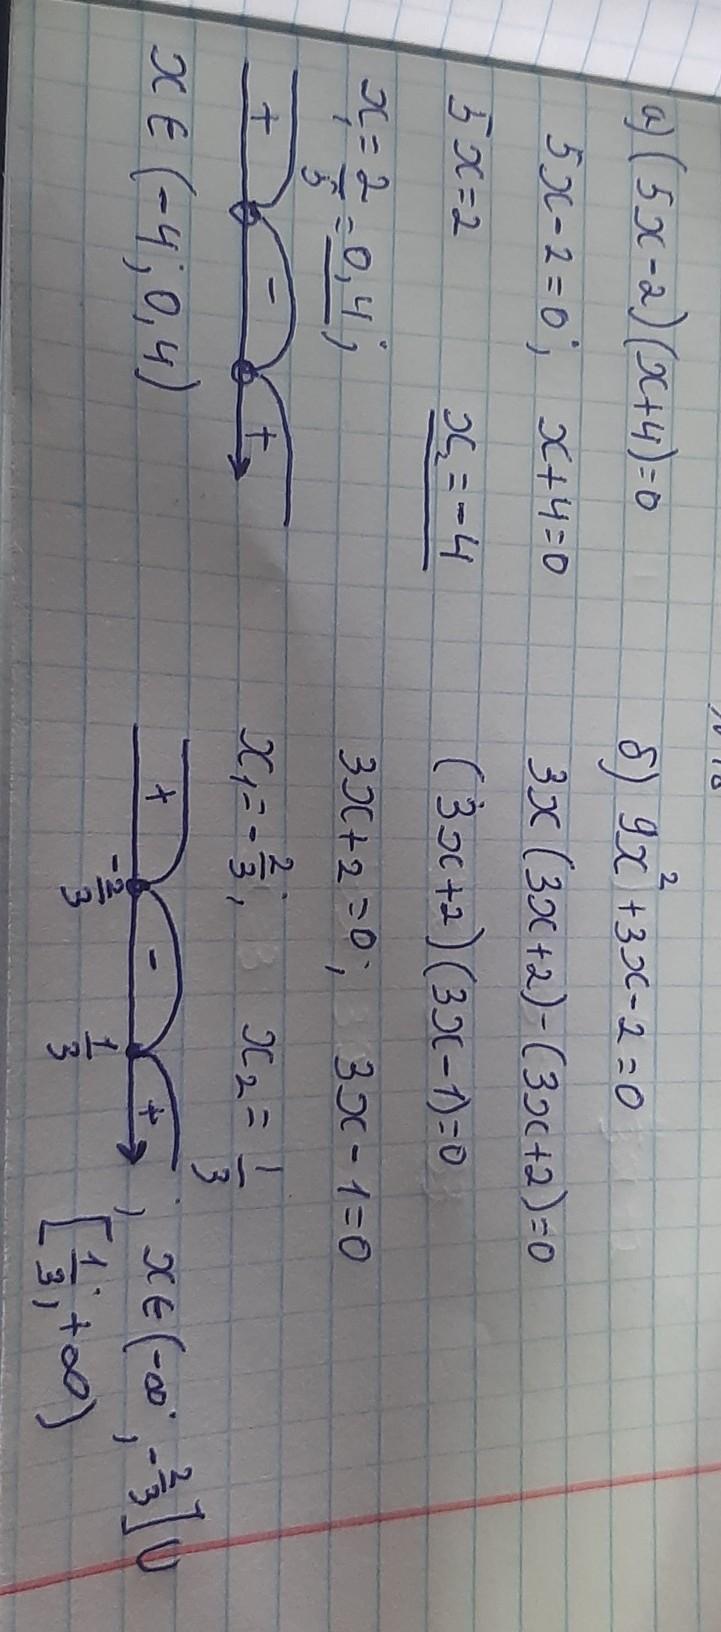 а) (5x-2)(x+4)=0
5x-2=0; x+4=0
5x=2
x₂=-4
x₁=2/5=0,4;
+ - +
x∈(-4; 0,4)
б) 9x²+3x-2=0
3x(3x+2)-(3x+2)=0
(3x+2)(3x-1)=0
3x+2=0; 3x-1=0
x₁=-2/3; x₂=1/3
+ - +
-2/3 1/3
; x∈(-∞; -2/3]∪
[1/3; +∞)